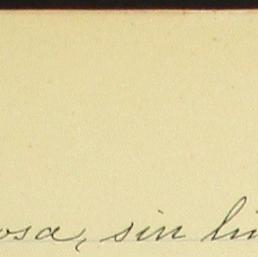 osa, sin li